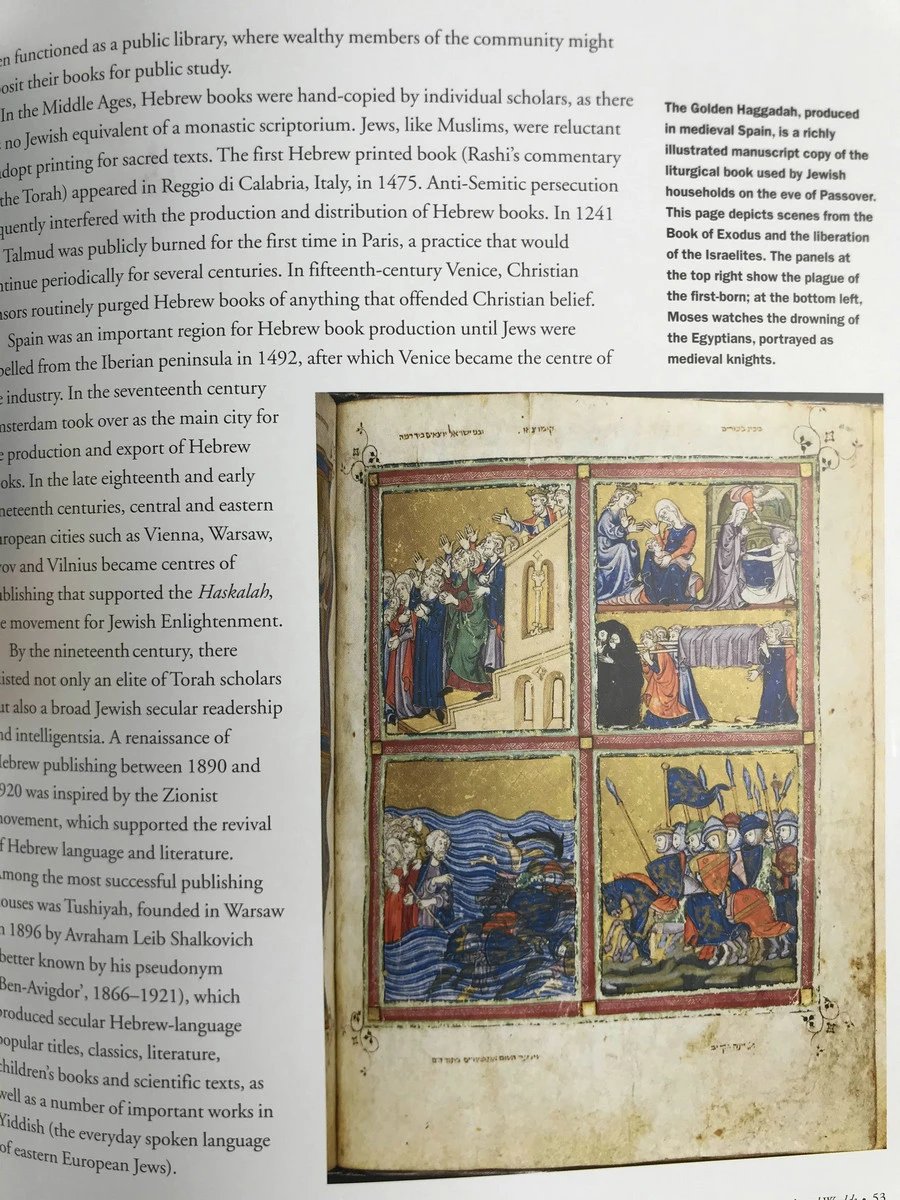 en functioned as a public library, where wealthy members of the community might
osit their books for public study.
In the Middle Ages, Hebrew books were hand-copied by individual scholars, as there
no Jewish equivalent of a monastic scriptorium. Jews, like Muslims, were reluctant
dopt printing for sacred texts. The first Hebrew printed book (Rashi's commentary
the Torah) appeared in Reggio di Calabria, Italy, in 1475. Anti-Semitic persecution
quently interfered with the production and distribution of Hebrew books. In 1241
Talmud was publicly burned for the first time in Paris, a practice that would
ntinue periodically for several centuries. In fifteenth-century Venice, Christian
nsors routinely purged Hebrew books of anything that offended Christian belief.
Spain was an important region for Hebrew book production until Jews were
pelled from the Iberian peninsula in 1492, after which Venice became the centre of
e industry. In the seventeenth century
msterdam took over as the main city for
e production and export of Hebrew
oks. In the late eighteenth and early
neteenth centuries, central and eastern
uropean cities such as Vienna, Warsaw,
vov and Vilnius became centres of
ublishing that supported the Haskalah,
e movement for Jewish Enlightenment.
By the nineteenth century, there
isted not only an elite of Torah scholars
ut also a broad Jewish secular readership
nd intelligentsia. A renaissance of
ebrew publishing between 1890 and
920 was inspired by the Zionist
ovement, which supported the revival
f Hebrew language and literature.
mong the most successful publishing
ouses was Tushiyah, founded in Warsaw
n 1896 by Avraham Leib Shalkovich
better known by his pseudonym
Ben-Avigdor', 1866–1921), which
produced secular Hebrew-language
popular titles, classics, literature,
children's books and scientific texts, as
well as a number of important works in
Yiddish (the everyday spoken language
of eastern European Jews).
The Golden Haggadah, produced
in medieval Spain, is a richly
illustrated manuscript copy of the
liturgical book used by Jewish
households on the eve of Passover.
This page depicts scenes from the
Book of Exodus and the liberation
of the Israelites. The panels at
the top right show the plague of
the first-born; at the bottom left,
Moses watches the drowning of
the Egyptians, portrayed as
medieval knights.
מכת בכורים
ובני ישראל יוצאים ביד רמה
53